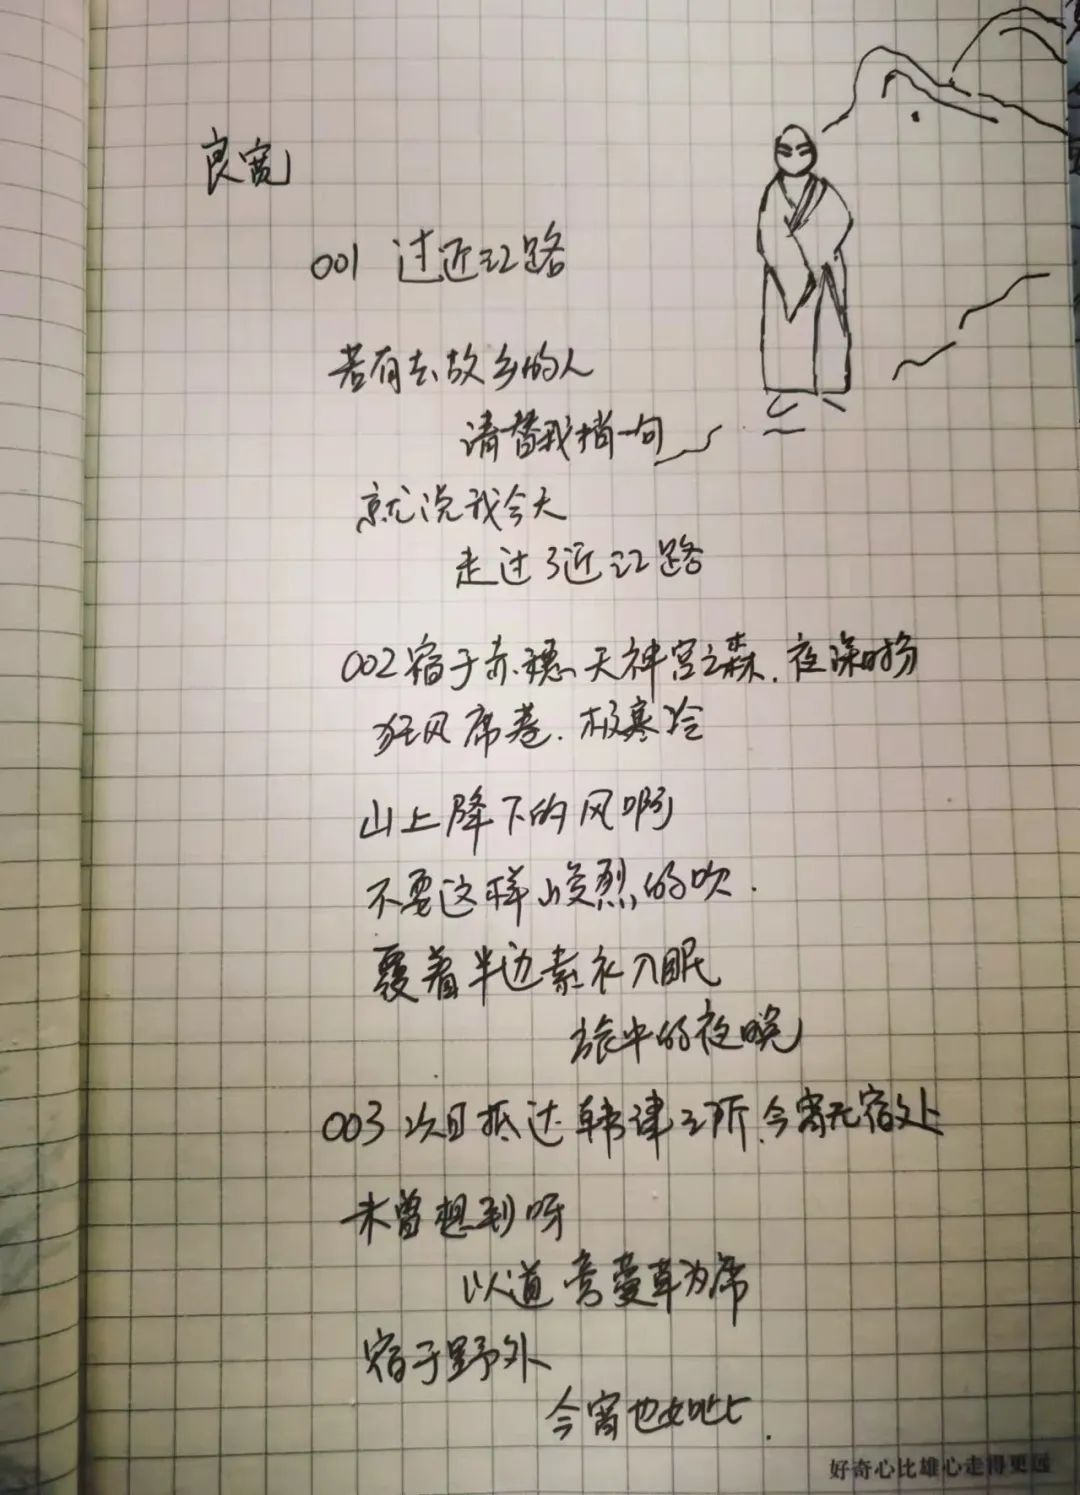 良宽
001 过近江路
若有去故乡的人
请替我捎一句
就说我今天
走过了近江路
002 宿于赤穗天神宫之森.夜深时分
狂风席卷.极寒冷
山上降下的风啊
不要这样峻烈的吹.
覆着半边素衣入眠
旅中的夜晚
003 次日抵达韩津之所.今宵无宿处
未曾想到呀
以道旁蔓草为席
宿于野外
今宵也如此.
好奇心比雄心走得更远